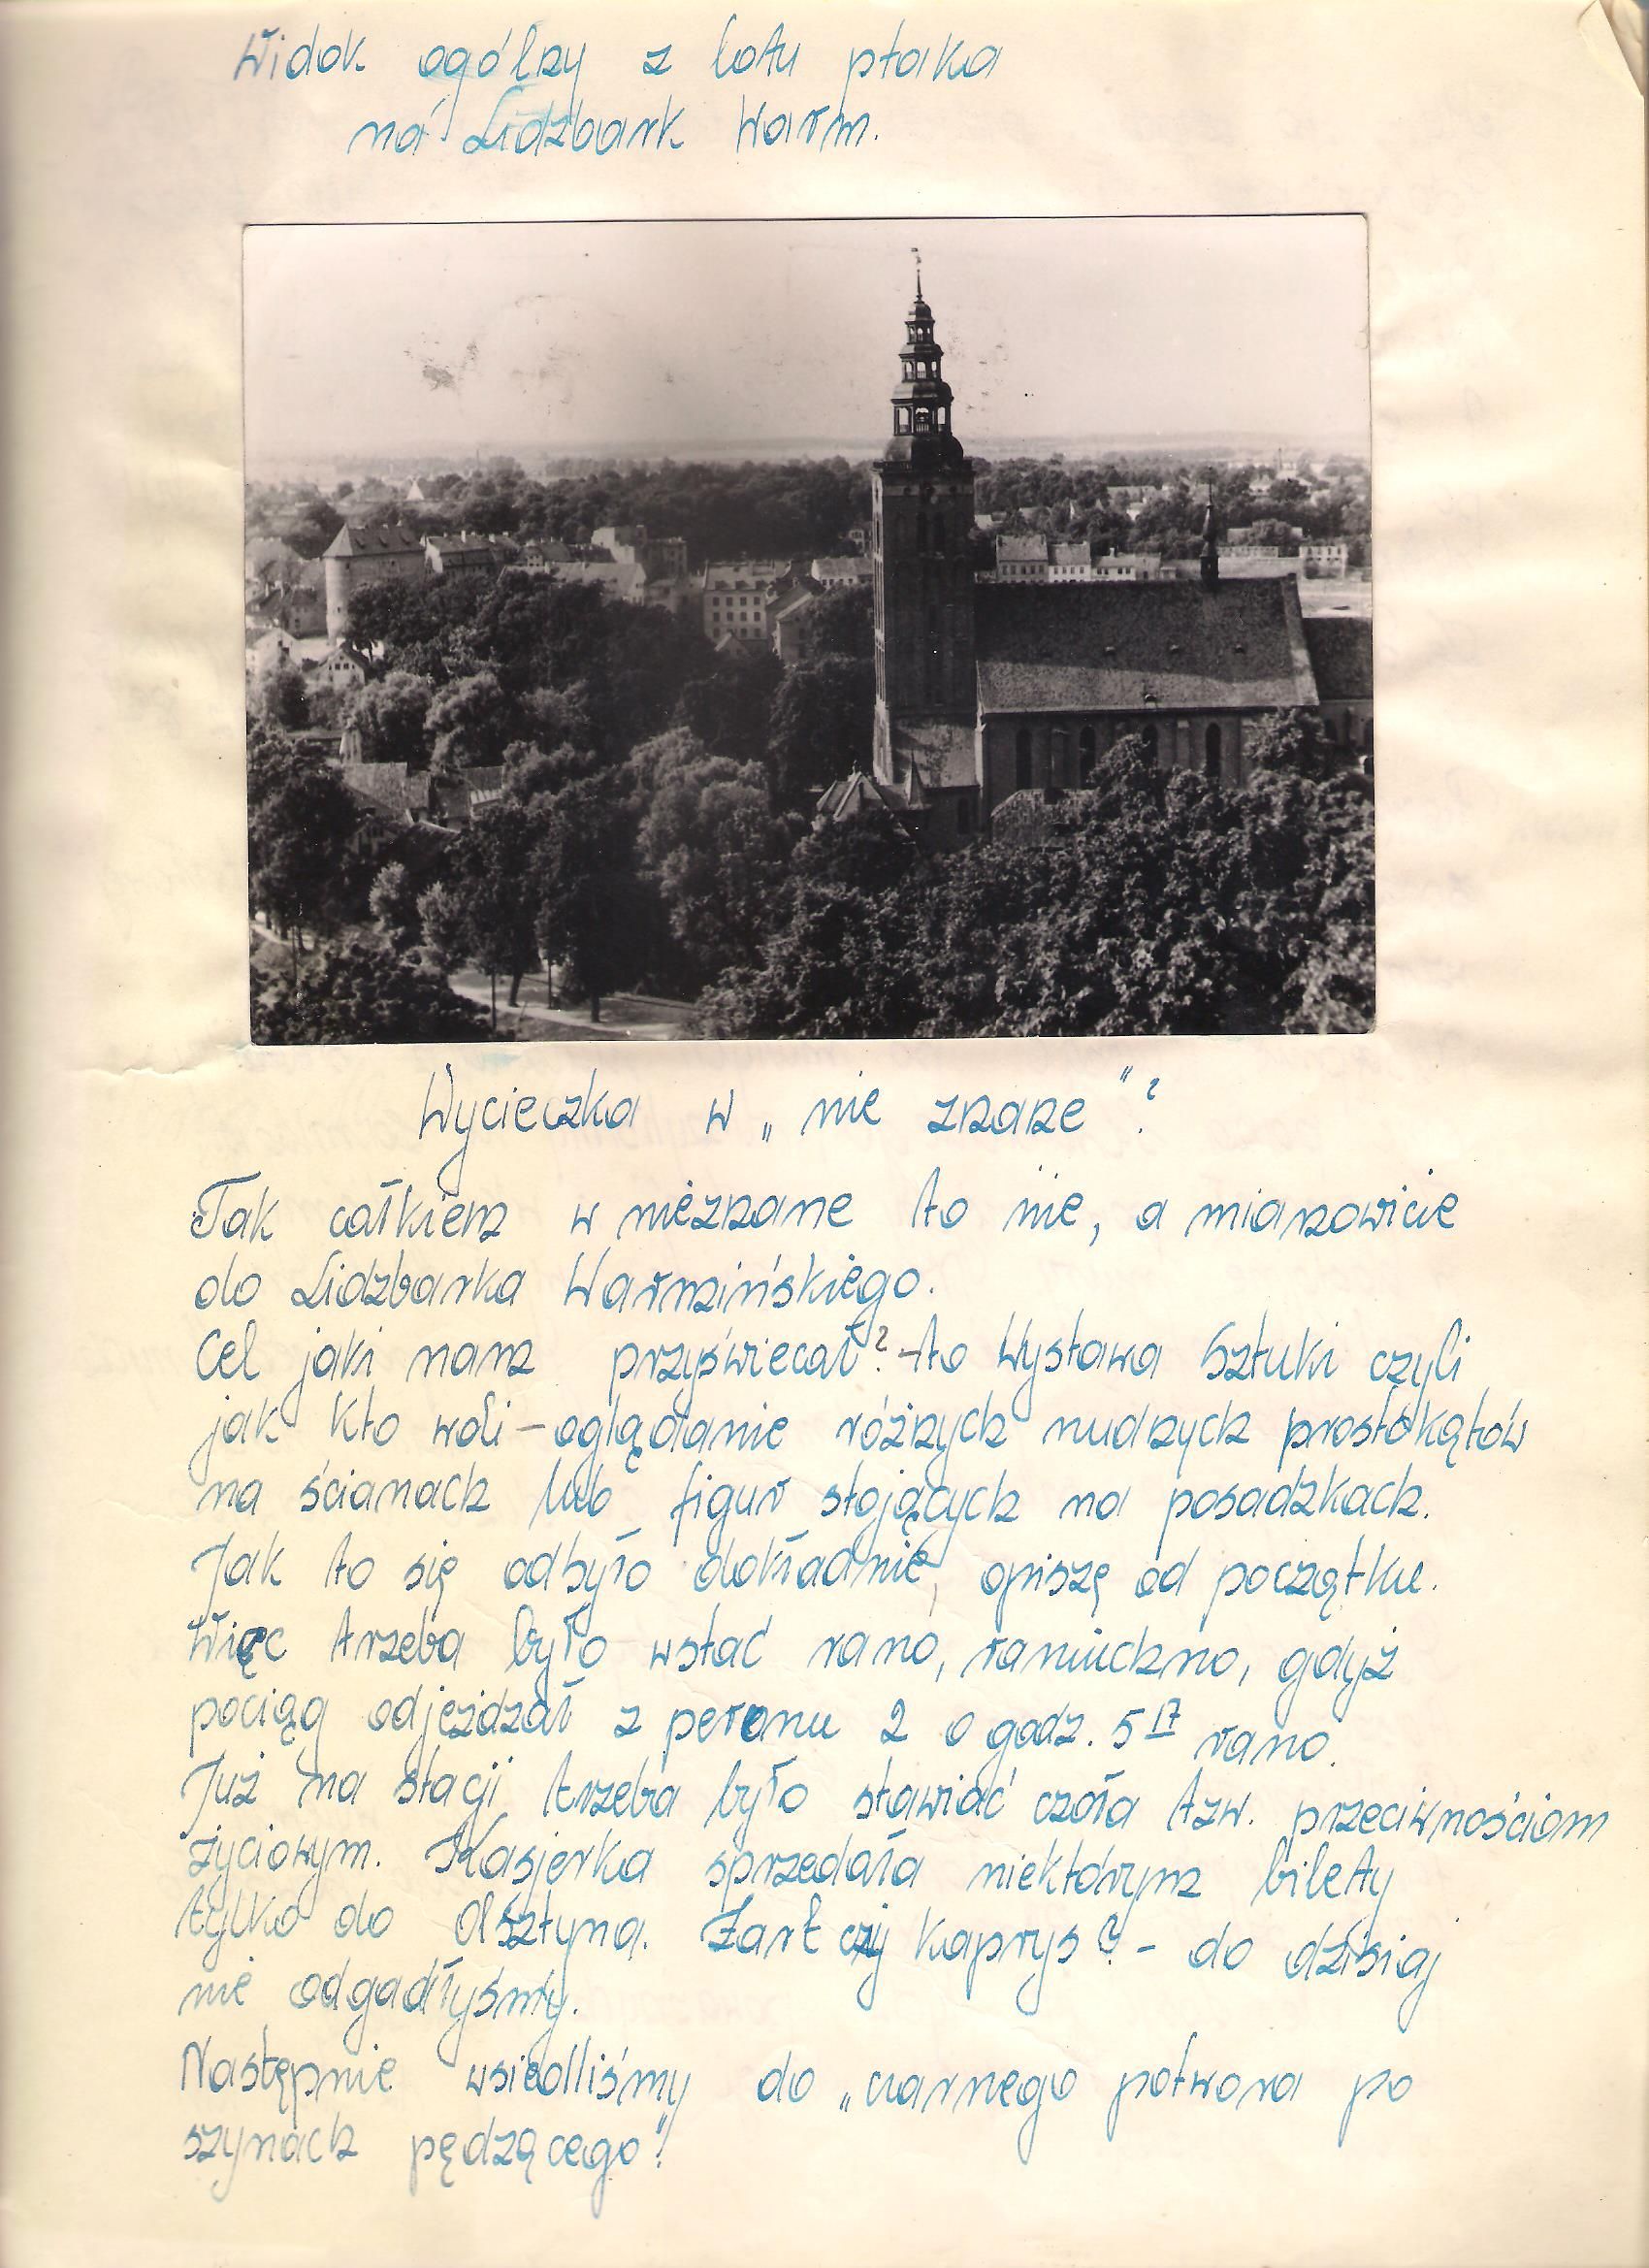 Widok ogólny z lotu ptaka
na Lidzbark Warm.
Wycieczka w „nie znane"?
Tak całkiem w nieznane to nie, a mianowicie
do Lidzbarka Warmińskiego.
Cel jaki nam przyświecał? - to Wystawa Sztuki czyli
jak kto woli - oglądanie różnych nudnych prostokątów
na ścianach lub figur stojących na posadzkach.
Jak to się odbyło dokładnie, opiszę od początku.
Więc trzeba było wstać rano, raniuchno, gdyż
pociąg odjeżdżał z peronu 2 o godz. 5 17 rano.
Już na stacji trzeba było stawiać czoła tzw. przeciwnościom
życiowym. Kasjerka sprzedała niektórym bilety
tylko do Olsztyna. Żart czy kaprys? - do dzisiaj
nie odgadłyśmy.
Następnie wsiedliśmy do „czarnego potwora po
szynach pędzącego".